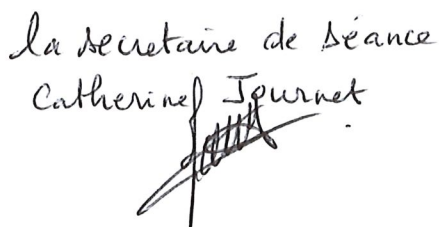 la secretaire de séance
Catherine Journet